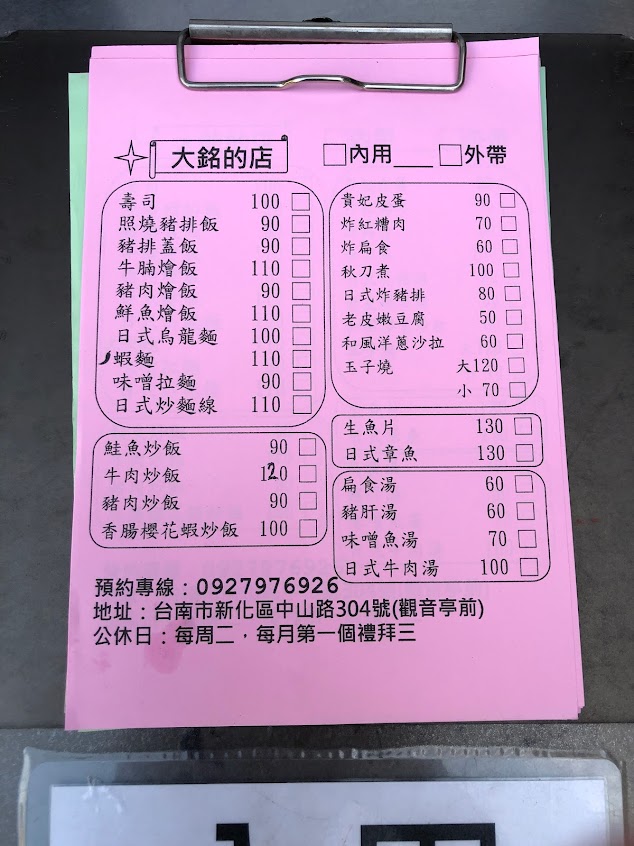 大銘的店 □內用____ □外帶
壽司 100 □
照燒豬排飯 90 □
豬排蓋飯 90 □
牛腩燴飯 110 □
豬肉燴飯 90 □
鮮魚燴飯 110 □
日式烏龍麵 100 □
蝦麵 110 □
味噌拉麵 90 □
日式炒麵線 110 □
鮭魚炒飯 90 □
牛肉炒飯 120 □
豬肉炒飯 90 □
香腸櫻花蝦炒飯 100 □
貴妃皮蛋 90 □
炸紅糟肉 70 □
炸扁食 60 □
秋刀煮 100 □
日式炸豬排 80 □
老皮嫩豆腐 50 □
和風洋蔥沙拉 60 □
玉子燒 大120 □
小 70 □
生魚片 130 □
日式章魚 130 □
扁食湯 60 □
豬肝湯 60 □
味噌魚湯 70 □
日式牛肉湯 100 □
預約專線：0927976926
地址：台南市新化區中山路304號(觀音亭前)
公休日：每周二，每月第一個禮拜三